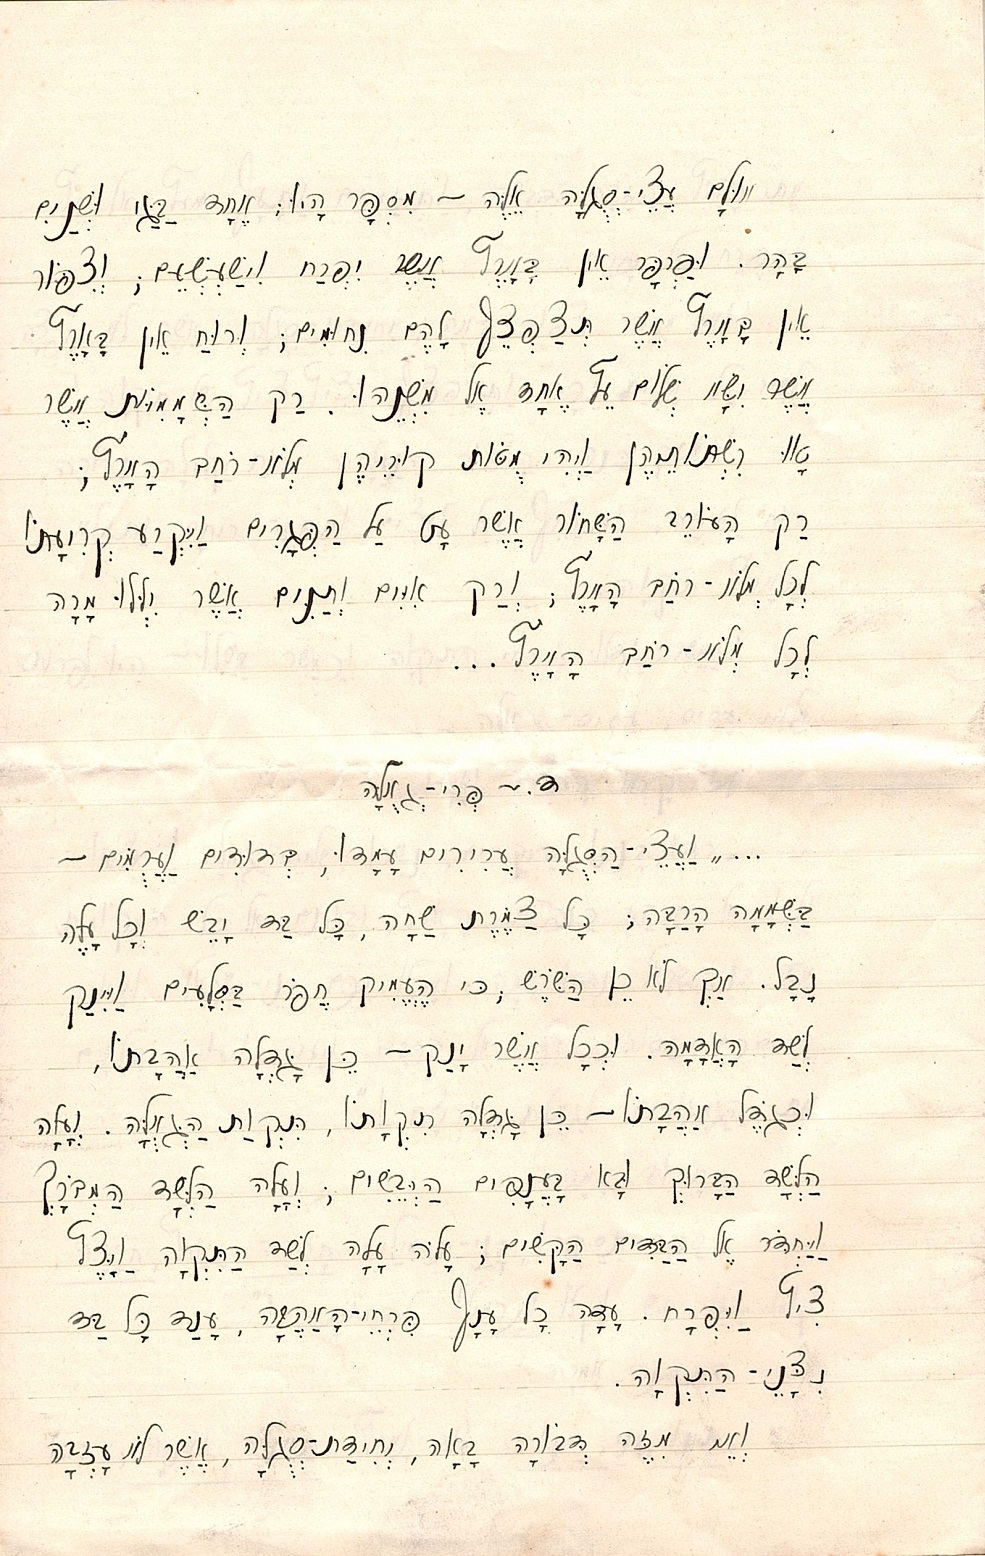 אולם עֲצֵי-סְגֻלָּה אֵלֶּה – מִסְפָּר הָיוּ; אֶחָד בַּגַּי וּשְׁנַיִם
בָּהָר. וּפַרְפָּר אֵין בָּאָרֶץ אֲשֶׁר יִפְרַח וִישַׁעְשְׁעֵם; וְצִפּוֹר
אֵין בָּאָרֶץ אֲשֶׁר תְּצַפְצֵף לָהֶם נִחוּמִים; וְרוּחַ אֵין בָּאָרֶץ
אֲשֶׁר יִשָּׂא שְׁלוֹם עֵץ אֶחָד אֶל מִשְׁנֵהוּ. רַק הַשְּׂמָמִיּוֹת אֲשֶׁר
טָווּ רִשְׁתוֹתֵיהֶן וַיִּהְיוּ מֻטּוֹת קוּרֵיהֶן מְלֹא-רֹחַב הָאָרֶץ;
רַק הָעוֹרֵב הַשָּׁחוֹר אֲשֶׁר עָט עַל הַפְּגָרִים וַיִּקְרַע קְרִיעָתוֹ
לְכָל מְלֹא-רֹחַב הָאָרֶץ; וְרַק אִיִּים וְתַנִּים אֲשֶׁר יְלִלוּ מָרָה
לְכָל מְלֹא-רֹחַב הָאָרֶץ...
ד. ~ פְּרִי-גְאֻלָּה
..." וַעֲצֵי-הַסְּגֻלָּה עֲרִירִים עָמָדוּ, בְּדוּדִים וַעֲרֻמִּים –
בַּשְּׁמָמָה הָרַבָּה; כָּל צַמֶּרֶת שַׁחָה, כָּל בַּד יָבֵשׁ וְכָל עָלֶה
נָבָל. אַךְ לֹא כֵן הַשֹּׁרֶשׁ; כִּי הֶעֱמִיק חֲפֹר בַּסְּלָעִים וַיִּינַק
לְשַׁד הָאֲדָמָה. וּכְכָל אֲשֶׁר יָנַק – כֵּן גָּדְלָה אַהֲבָתוֹ,
וּכִגְדֹל אַהֲבָתוֹ – כֵּן גָּדְלָה תִקְוָתוֹ, תִּקְוַת הַגְּאֻלָּה. וְעָלָה
הַלְּשָׁד הַבָּרוּךְ וּבָא בָּעֲנָפִים הַיְבֵשִׁים; וְעָלָה הַלְּשָׁד הַמְבֹרָךְ
וַיַּחְדֹּר אֶל הַבַּדִּים הַקָּשִׁים; עָלֹה עָלָה לְשַׁד הַתִּקְוָה וַיָּצֶץ
צִיץ וַיִּפְרָח. עָדָה כָל עָנָף פִּרְחֵי-הָאַהֲבָה, עָנַד כָּל בַּד
נִצָּנֵי-הַתִּקְוָה.
וְאֵי מִזֶּה דְבוֹרָה בָּאָה, יְחִידַת-סְגֻלָּה, אֲשֶׁר לֹא עָזְבָה